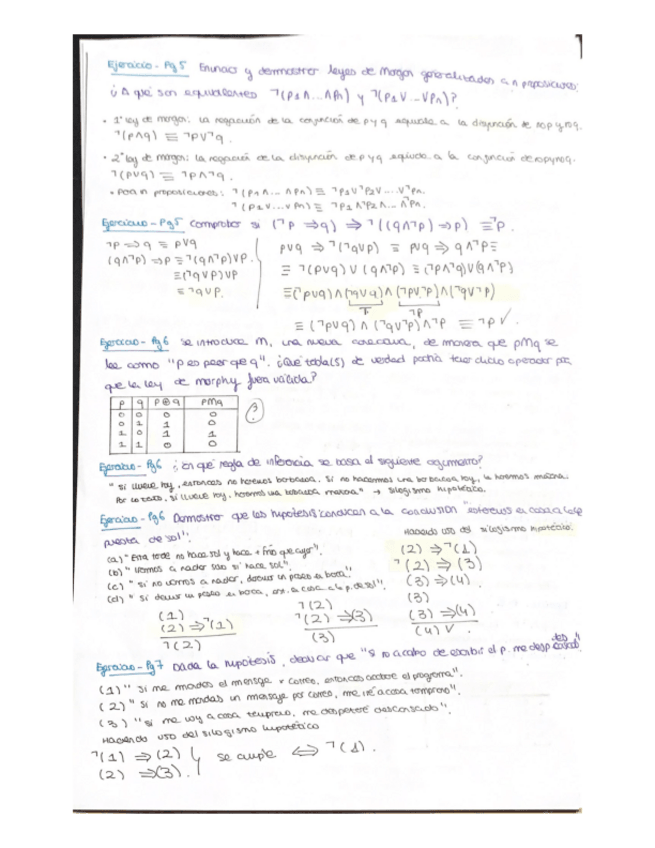 Ejercicio - Pg 5 Enunciar y demostrar leyes de Morgan generalizadas a n proposiciones.
¿A qué son equivalentes ¬(p1∧...∧pn) y ¬(p1∨...∨pn)?
• 1ª ley de morgan: La negación de la conjunción de p y q equivale a la disyunción de no p y no q.
¬(p∧q) ≡ ¬p∨¬q.
• 2ª ley de morgan: La negación de la disyunción de p y q equivale a la conjunción de no p y no q.
¬(p∨q) ≡ ¬p∧¬q.
• Para n proposiciones: ¬(p1∧... ∧pn) ≡ ¬p1∨¬p2∨...∨¬pn.
¬(p1∨...∨pn) ≡ ¬p1∧¬p2∧...∧¬pn.
Ejercicio - Pg 5 Comprobar si (¬p ⇒ q) ⇒ ¬((q∧¬p) ⇒ p) ≡ ¬p.
¬p ⇒ q ≡ p∨q
(q∧¬p) ⇒ p ≡ ¬(q∧¬p)∨p
≡ (¬q∨p)∨p
≡ ¬q∨p.
p∨q ⇒ ¬(¬q∨p) ≡ p∨q ⇒ q∧¬p ≡
≡ ¬(p∨q)∨(q∧¬p) ≡ (¬p∧¬q)∨(q∧¬p)
≡ (¬p∨q)∧(¬q∨q)∧(¬p∨¬p)∧(¬q∨¬p)
T ¬p
≡ (¬p∨q)∧(¬q∨¬p)∧¬p ≡ ¬p ✓.
Ejercicio - Pg 6 Se introduce M, una nueva conectiva, de manera que pMq se
lee como "p es peor que q". ¿Qué tabla(s) de verdad podría tener dicho operador para
que la ley de morphy fuera válida?
p q p⊕q pMq
0 0 0 0
0 1 1 0
1 0 1 1
1 1 0 0
?
Ejercicio - Pg 6 ¿En qué regla de inferencia se basa el siguiente argumento?
"Si llueve hoy, entonces no haremos barbacoa. Si no hacemos una barbacoa hoy, la haremos mañana.
Por lo tanto, si llueve hoy, haremos una barbacoa mañana" → silogismo hipotético.
Ejercicio - Pg 6 Demostrar que las hipótesis conducen a la conclusión "estaremos en casa a la
puesta de sol".
(a) "Esta tarde no hace sol y hace + frío que ayer".
(b) "Vamos a nadar solo si hace sol".
(c) "Si no vamos a nadar, daremos un paseo en barca".
(d) "Si damos un paseo en barca, est. en casa a la p. de sol".
Haciendo uso del silogismo hipotético.
(2) ⇒ ¬(1)
¬(2) ⇒ (3)
(3) ⇒ (4).
(3)
(3) ⇒ (4)
(4) ✓.
(1)
(2) ⇒ ¬(1)
¬(2)
¬(2)
¬(2) ⇒ (3)
(3)
Ejercicio - Pg 7 Dada la hipótesis, deducir que "si no acabo de escribir el p. me desp. descansado"
(1) "Si me mandas el mensaje x correo, entonces acabaré el programa".
(2) "Si no me mandas un mensaje por correo, me iré a casa temprano".
(3) "Si me voy a casa temprano, me despertaré descansado".
Haciendo uso del silogismo hipotético
¬(1) ⇒ (2)
(2) ⇒ (3).
se cumple ⇔ ¬(1).